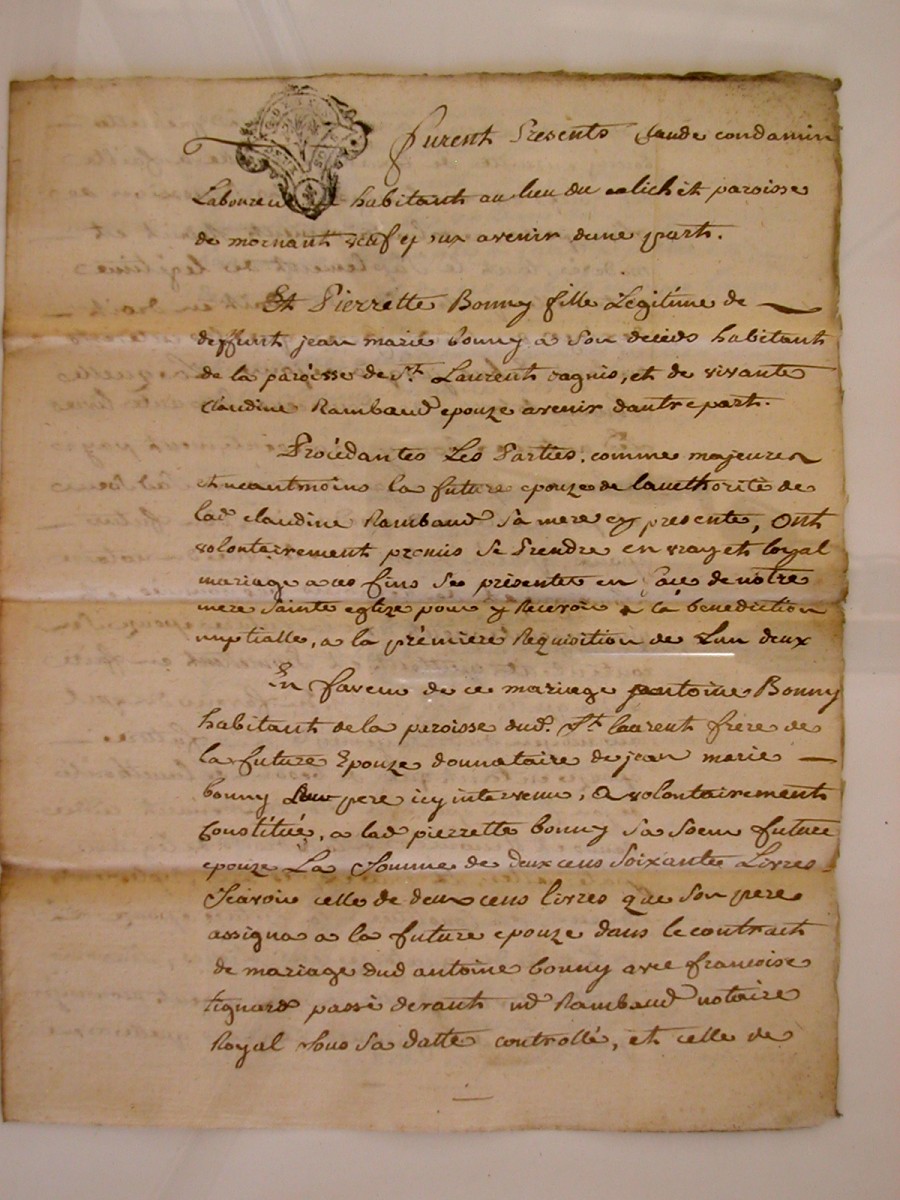 furent Presents Claude condamin
Laboureur habitant au lieu du paroisse
de mornant veuf epoux avenir dune part.
Et Pierrette Bonny fille Legitime de
deffunt jean marie bonny a son deceds habitant
de la paroisse de St. Laurent dagnis, et de vivante
Claudine Rambaud epouze avenir dautre part.
Procédantes Les Parties comme majeures
et neantmoins la future epouze de lauthorité de
lad claudine Rambaud sa mere cy presente, Ont
volontairement promis se Prendre en vray et loyal
mariage a ces fins se présenter en face de notre
mere Sainte eglize pour y Recevoir la bénédiction
nuptialle, a la prémiére Requisition de Lun deux
En faveur de ce mariage antoine Bonny
habitant de la paroisse dud. St. laurent frere de
la future Epouze donnataire de jean marie
bonny Leur pere icy intervenu, a volontairement
Constitué, a lad pierrette bonny sa soeur future
epouze La Somme de deux cens Soixante Livres
Scavoir celle de deux cens livres que son pere
assigna a la future epouze dans le contract
de mariage dud antoine bonny avec francoise
passé devant Rambaud notaire
Royal sous sa datte controllé, et celle de